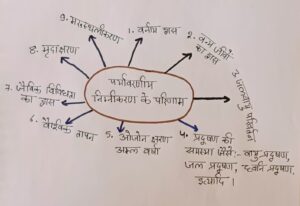 पर्यावरणीय
निम्नीकरण के परिणाम
1. वर्नाय ह्रास
2. वन्य जीवों
का ह्रास
3. जलवायु परिवर्तन
4. प्रदूषण की
समस्या जैसे:- वायु प्रदूषण,
जल प्रदूषण, ध्वनि प्रदूषण,
इत्यादि।
5. ओजोन क्षरण
अम्ल वर्षा
6. वैश्विक तापन
7. जैविक विविधता
का ह्रास
8. मृदाक्षरण
9. मरुस्थलीकरण